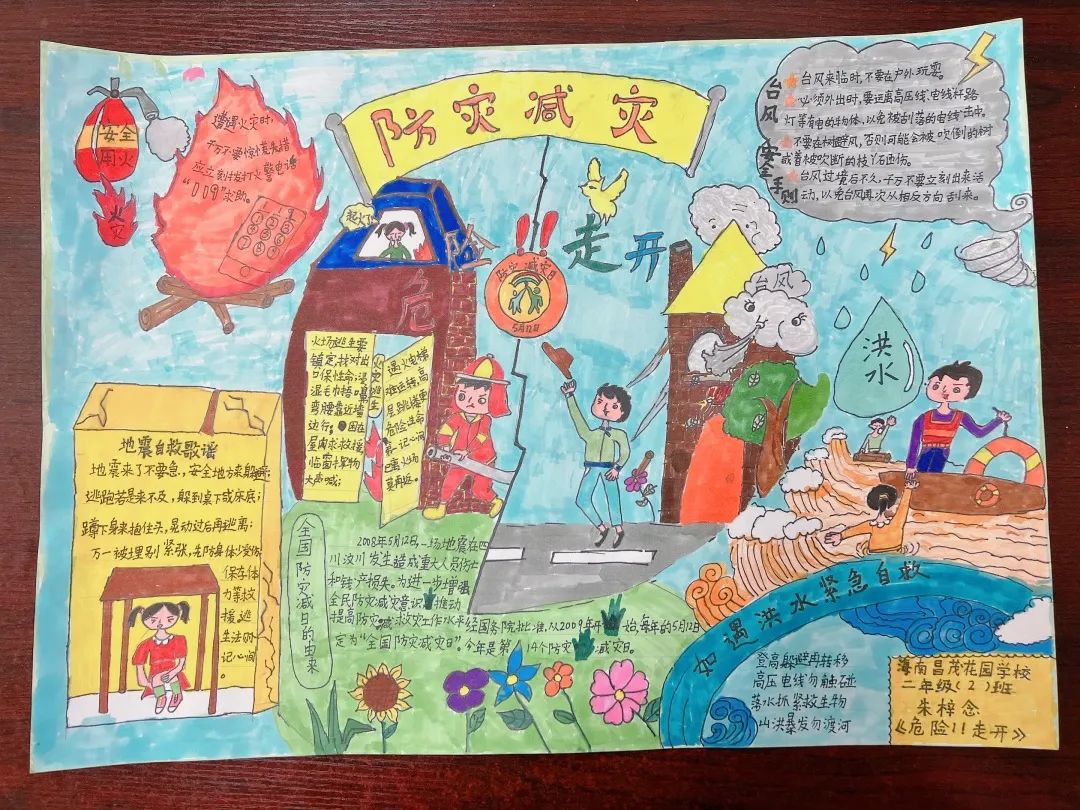 防灾减灾
安全
用火
火
灾
遭遇火灾时,
千万不要惊慌失措
应立刻拨打火警电话
“119”求助。
台风安全手则
台风来临时,不要在户外玩耍。
必须外出时,要远离高压线、电线杆、路
灯等有电的物体,以免被刮落的电线击中。
不要在树下避风,否则可能会被吹倒的树
或着被吹断的枝丫石西伤。
台风过境后不久,千万不要立刻出来活
动,以免台风再次从相反方向刮来。
起火了
危
险
!!
走开
防灾减灾日
5月12日
台风
洪
水
火灾逃生
火场逃生要
镇定,找对出
口保性命;浸
湿毛巾捂口鼻
弯腰靠近墙
边行;困在
屋内求救援,
临窗挥物
大声喊;
遇火电梯
难运转,高
层跳楼更
危险;逃命
莫再返。
地震自救歌谣
地震来了不要急,安全地方来躲避;
逃跑若是来不及,躲到桌下或床底;
蹲下身来抱住头,晃动过后再逃离;
万一被埋别紧张,先防身体少受伤
保存体
力等救
援,逃
生法则
记心间
全国防灾减灾日的由来
2008年5月12日,一场地震在四
川汶川发生造成重大人员伤亡
和财产损失。为进一步增强
全民防灾减灾意识,推动
提高防灾减灾救灾工作水平
经国务院批准,从2009年开始,每年的5月12日
定为“全国防灾减灾日”。今年是第14个防灾减灾日。
如遇洪水紧急自救
登高躲避再转移
高压电线勿触碰
落水抓紧救生物
山洪暴发勿渡河
海南昌茂花园学校
二年级(2)班
朱梓念
《危险!!走开》